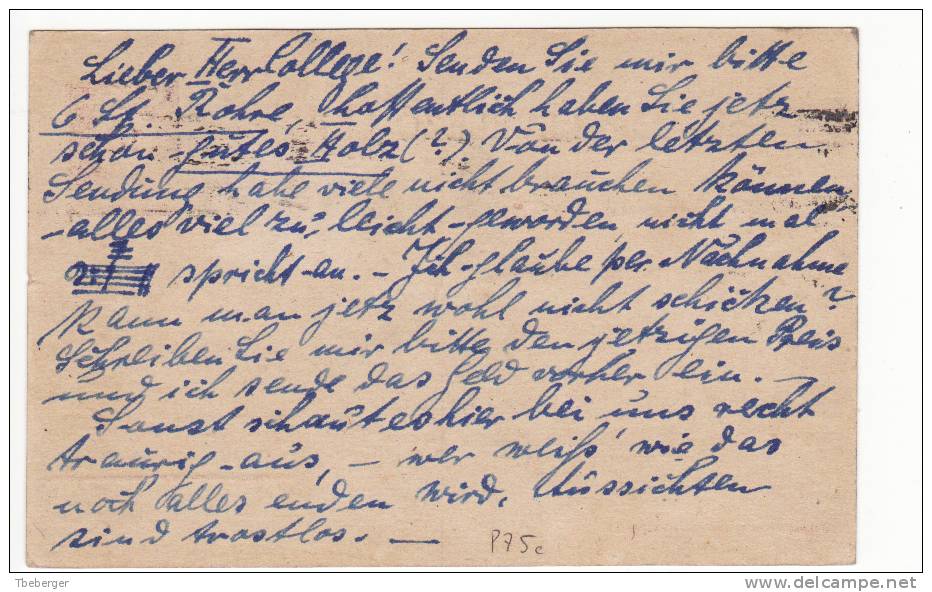 Lieber Herr College! Senden Sie mir bitte
6 St. Rohre, hoffentlich haben Sie jetz
schon gutes Holz (?) Von der letzten
Sendung habe viele nicht brauchen können
- alles viel zu leicht geworden, nicht mal
spricht an. - Ich glaube per Nachnahme
kann man jetz wohl nicht schicken?
Schreiben Sie mir bitte den jetzigen Preis
und ich sende das Geld vorher ein. -
Sonst schaut es hier bei uns recht
traurig aus, - wer weiß wie das
noch alles enden wird, Aussichten
sind trostlos. -
P75c
Tbeberger
delcampe.net